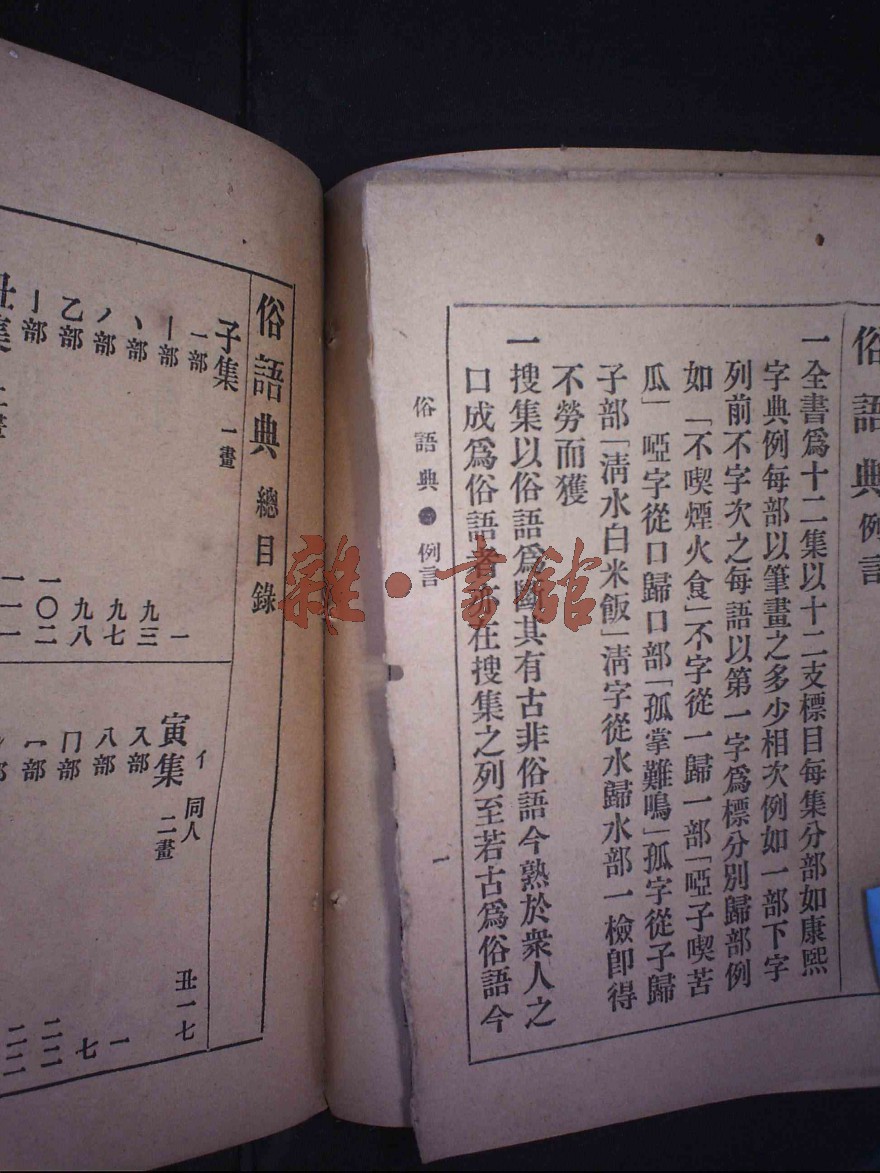 俗語典例言
一全書爲十二集以十二支標目每集分部如康熙
字典例每部以筆畫之多少相次例如一部下字
列前不字次之每語以第一字爲標分別歸部例
如「不喫煙火食」不字從一歸一部「啞子喫苦
瓜」啞字從口歸口部「孤掌難鳴」孤字從子歸
子部「淸水白米飯」淸字從水歸水部一檢卽得
不勞而獲
一搜集以俗語爲
其有古非俗語今熟於衆人之
口成爲俗語者
在搜集之列至若古爲俗語今
俗語典 例言
一
俗語典 總目錄
子集 一畫
一部 一
丨部
丶部 九三
丿部 九七
乙部 九八
亅部 一〇二
丑集
亻同人 丑一七
寅集 二畫
入部 一
八部 七
冂部 二二
冖部
雜·書館